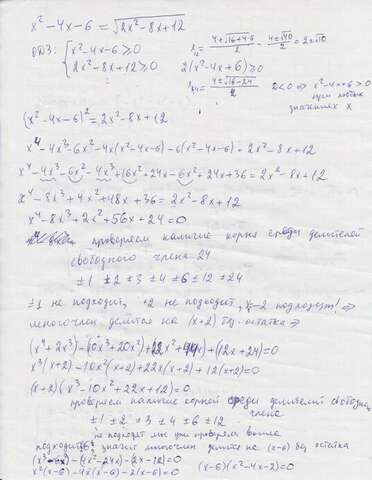 x² - 4x - 6 = √(2x² - 8x + 12)
ОДЗ: { x² - 4x - 6 ≥ 0
2x² - 8x + 12 ≥ 0
x₁,₂ = (4 ± √(16 + 4·6))/2 = (4 ± √40)/2 = 2 ± √10
2(x² - 4x + 6) ≥ 0
x₃,₄ = (4 ± √(16 - 24))/2
D < 0 ⇒ x² - 4x + 6 > 0
при любых
значениях x
(x² - 4x - 6)² = 2x² - 8x + 12
x⁴ - 4x³ - 6x² - 4x(x² - 4x - 6) - 6(x² - 4x - 6) = 2x² - 8x + 12
x⁴ - 4x³ - 6x² - 4x³ + 16x² + 24x - 6x² + 24x + 36 = 2x² - 8x + 12
x⁴ - 8x³ + 4x² + 48x + 36 = 2x² - 8x + 12
x⁴ - 8x³ + 2x² + 56x + 24 = 0
проверяем наличие корня среди делителей
свободного члена 24
±1 ±2 ±3 ±4 ±6 ±12 ±24
±1 не подходит, +2 не подходит, -2 подходит! ⇒
многочлен делится на (x+2) без остатка ⇒
(x⁴ + 2x³) - (10x³ + 20x²) + (22x² + 44x) + (12x + 24) = 0
x³(x+2) - 10x²(x+2) + 22x(x+2) + 12(x+2) = 0
(x+2)(x³ - 10x² + 22x + 12) = 0
проверяем наличие корней среди делителей свободного
члена
±1 ±2 ±3 ±4 ±6 ±12
не подходят мы проверяли выше
подходит 6, значит многочлен делится на (x-6) без остатка
(x³ - 6x²) - (4x² - 24x) - (2x - 12) = 0
x²(x-6) - 4x(x-6) - 2(x-6) = 0
(x-6)(x² - 4x - 2) = 0